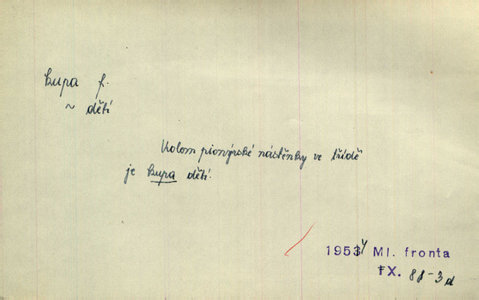 kupa f.
~ dětí
Kolem pionýrské nástěnky ve třídě
je kupa dětí.
1953 Ml. fronta
IX. 81-3d